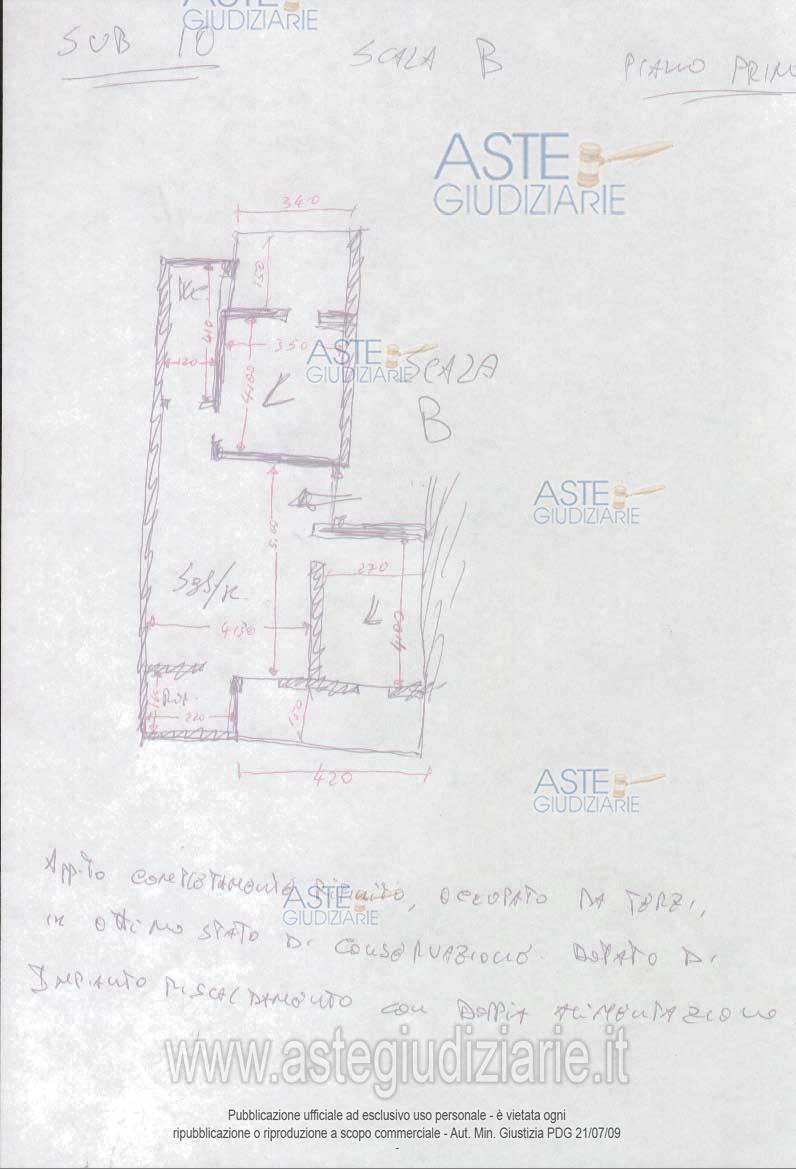 ASTE
GIUDIZIARIE
SUB 10
SCALA B
PIANO PRIMO
ASTE
GIUDIZIARIE
340
150
WC
410
120
350
4,00
L
ASTE
GIUDIZIARIE
SCALA
B
ASTE
GIUDIZIARIE
270
L
4,00
4,30
Rip.
220
150
420
ASTE
GIUDIZIARIE
App.to COMPLETAMENTE RIFINITO, OCCUPATO DA TERZI,
ASTE
GIUDIZIARIE
IN OTTIMO STATO DI CONSERVAZIONE. DOTATO DI
IMPIANTO RISCALDAMENTO CON DOPPIA ALIMENTAZIONE
www.astegiudiziarie.it
Pubblicazione ufficiale ad esclusivo uso personale - è vietata ogni
ripubblicazione o riproduzione a scopo commerciale - Aut. Min. Giustizia PDG 21/07/09
-